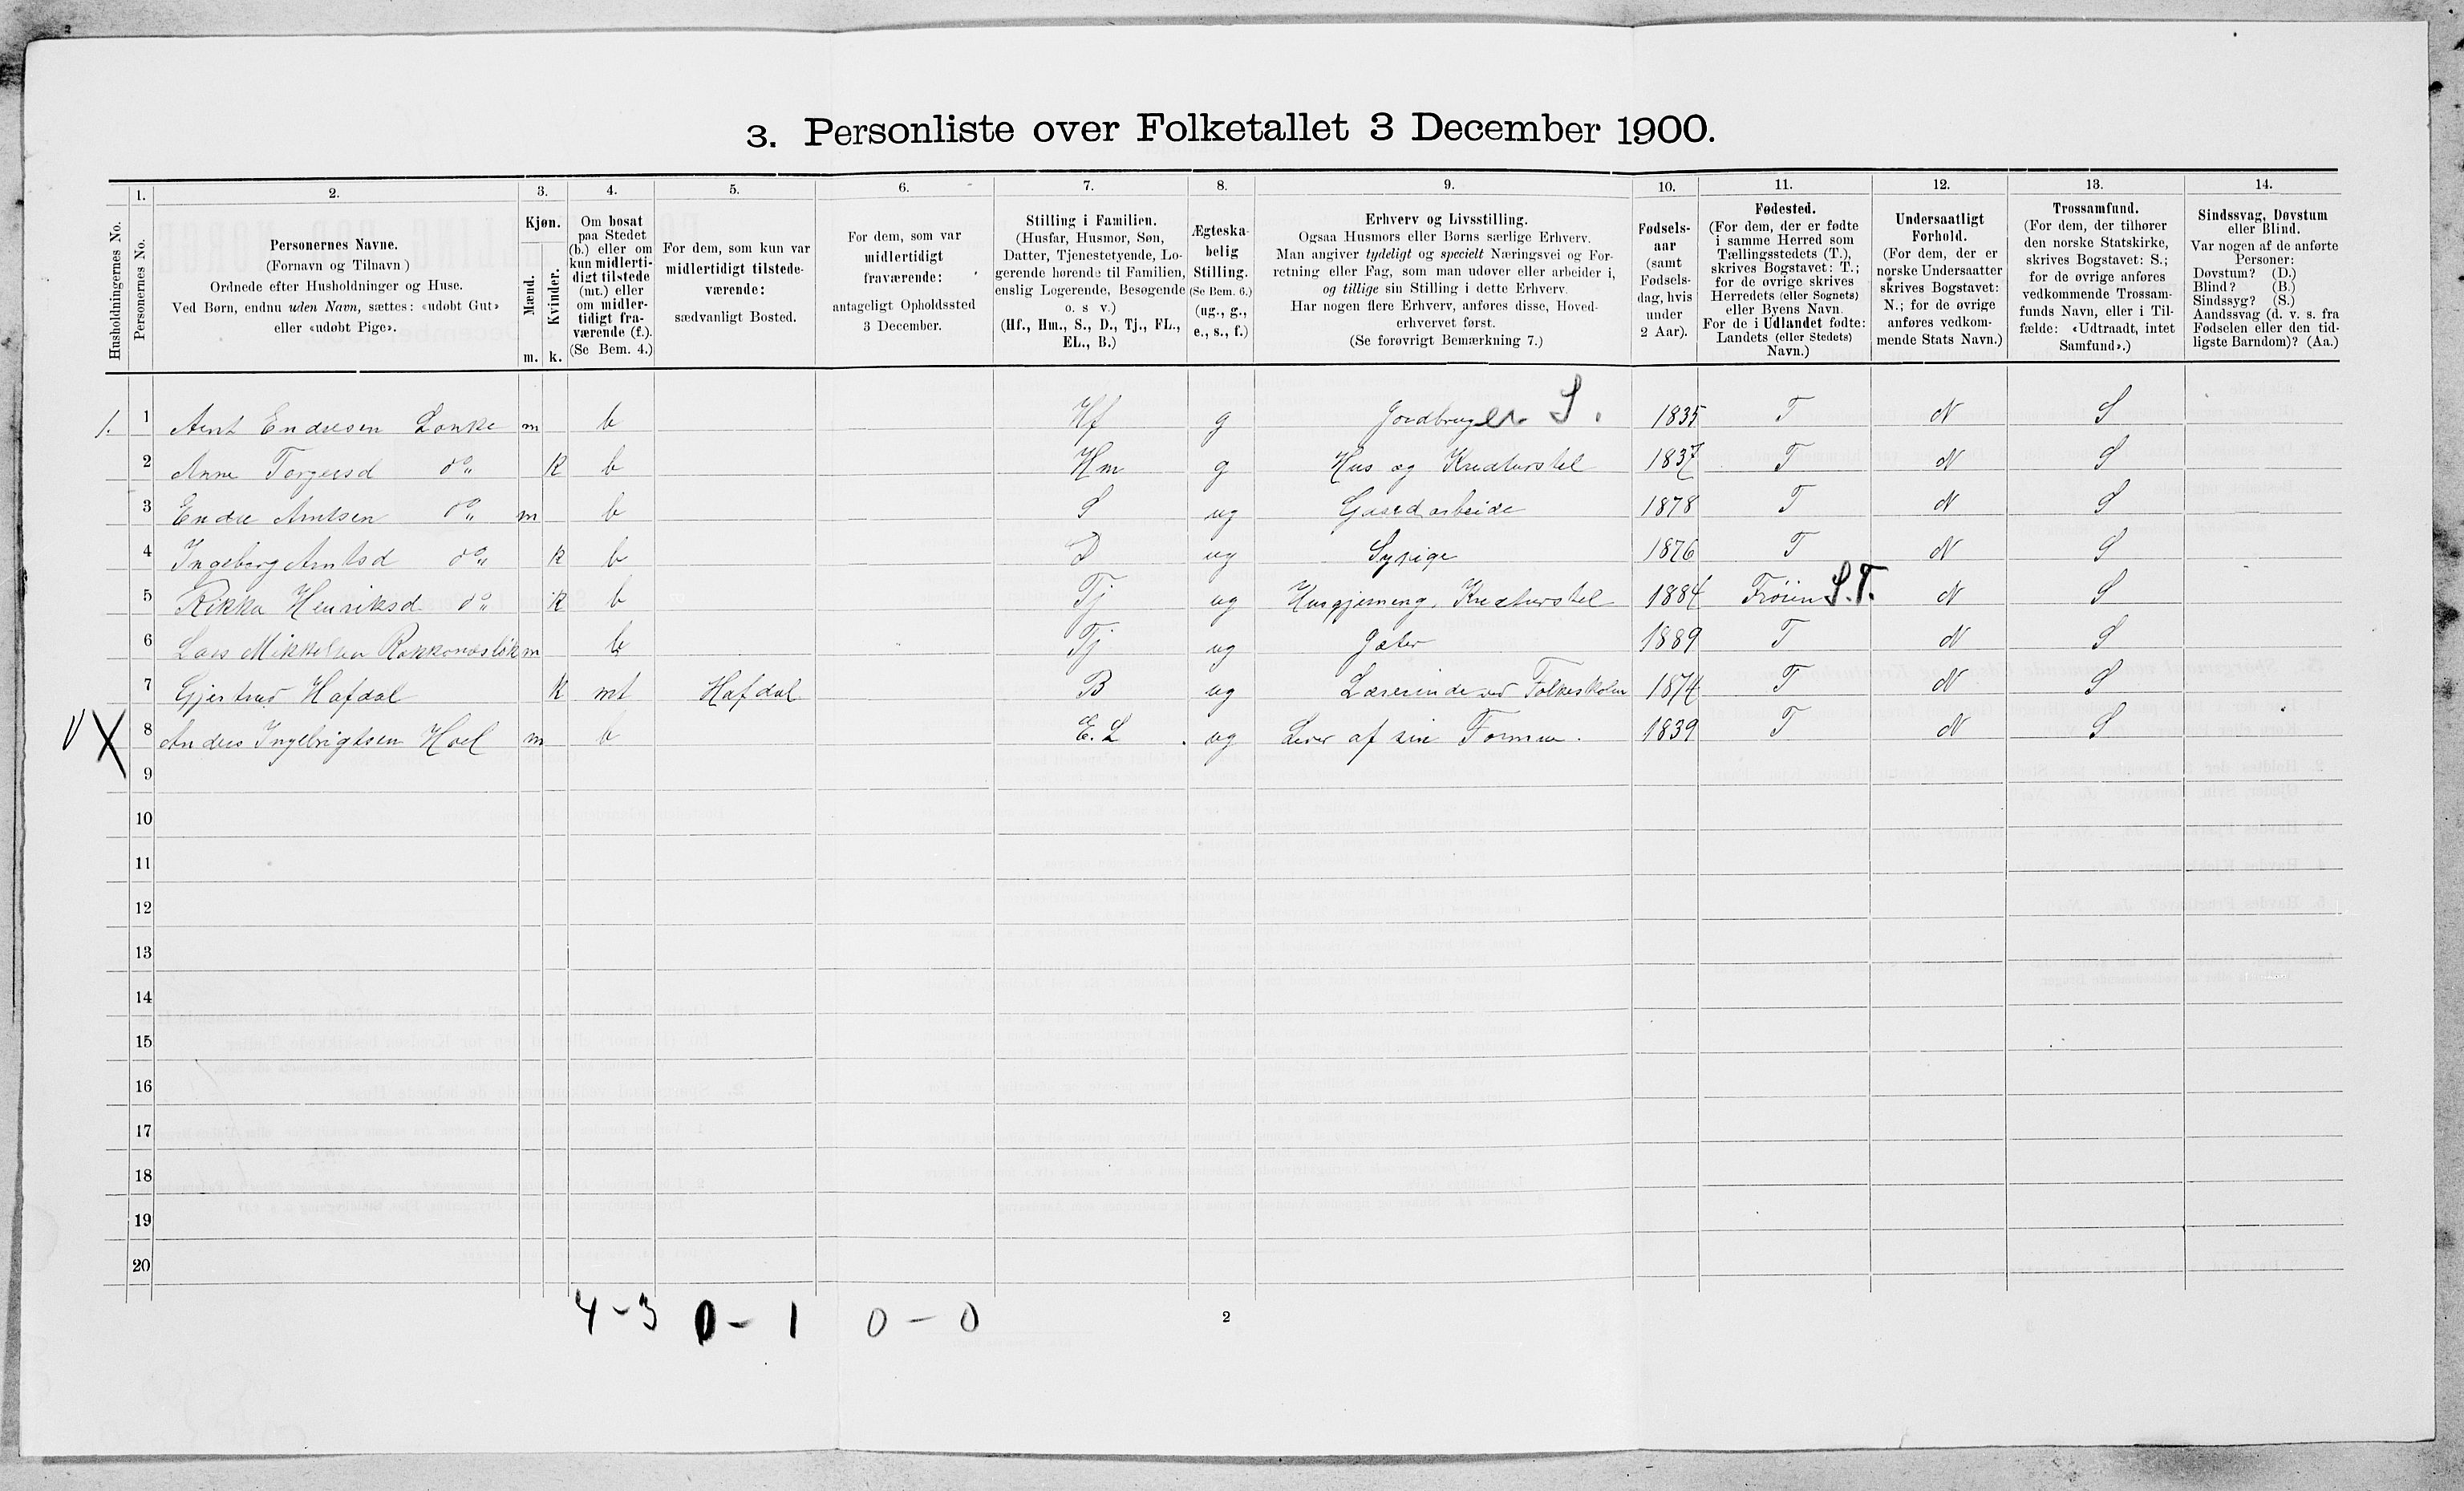 3. Personliste over Folketallet 3 December 1900.
Husholdningernes No.
1.
Personernes No.
2.
Personernes Navne.
(Fornavn og Tilnavn)
Ordnede efter Husholdninger og Huse.
Ved Børn, endnu uden Navn, sættes: «udøbt Gut»
eller «udøbt Pige».
3.
Kjøn.
Mænd.
Kvinder.
m. k.
4.
Om bosat
paa Stedet
(b.) eller om
kun midlerti-
digt tilstede
(mt.) eller
om midler-
tidigt fra-
værende (f.).
(Se Bem. 4.)
5.
For dem, som kun var
midlertidigt tilstede-
værende:
sædvanligt Bosted.
6.
For dem, som var
midlertidigt
fraværende:
antageligt Opholdssted
3 December.
7.
Stilling i Familien.
(Husfar, Husmor, Søn,
Datter, Tjenestetyende, Lo-
gerende hørende til Familien,
enslig Logerende, Besøgende
o. s v.)
(Hf., Hm., S., D., Tj., FL.,
EL., B.)
8.
Ægteska-
belig
Stilling.
(Se Bem. 6.)
(ug., g.,
e., s., f.)
9.
Erhverv og Livsstilling.
Ogsaa Husmors eller Børns særlige Erhverv.
Man angiver tydeligt og specielt Næringsvei og For-
retning eller Fag, som man udøver eller arbeider i,
og tillige sin Stilling i dette Erhverv.
Har nogen flere Erhverv, anføres disse, Hoved-
erhvervet først.
(Se forøvrigt Bemærkning 7.)
10.
Fødsels-
aar
(samt
Fødsels-
dag, hvis
under
2 Aar).
11.
Fødested.
(For dem, der er fødte
i samme Herred som
Tællingsstedets (T.),
skrives Bogstavet: T.;
for de øvrige skrives
Herredets (eller Sognets)
eller Byens Navn.
For de i Udlandet fødte:
Landets (eller Stedets)
Navn.)
12.
Undersaatligt
Forhold.
(For dem, der er
norske Undersaatter
skrives Bogstavet:
N.; for de øvrige
anføres vedkom-
mende Stats Navn.)
13.
Trossamfund.
(For dem, der tilhører
den norske Statskirke,
skrives Bogstavet: S.;
for de øvrige anføres
vedkommende Trossam-
funds Navn, eller i Til-
fælde: «Udtraadt, intet
Samfund».)
14.
Sindssvag, Døvstum
eller Blind.
Var nogen af de anførte
Personer:
Døvstum? (D.)
Blind? (B.)
Sindssyg? (S.)
Aandssvag (d. v. s. fra
Fødselen eller den tid-
ligste Barndom)? (Aa.)
1. 1 Arnt Endresen Lonke m b Hf g Jordbruger S. 1835 T N S
2 Anne Torgersd do k b Hm g Hus og Kreaturstel 1837 T N S
3 Endre Arntsen do m b S ug Gaardarbeide 1878 T N S
4 Ingeborg Arntsd do k b D ug Sypige 1876 T N S
5 Rikka Henriksd do k b Tj ug Husgjerning, Kreaturstel 1884 Frøien S.T. N S
6 Lars Mikkelsen m b Tj ug Gjæter 1889 T N S
7 Gjertrud Hafdal k mt Hafdal B ug Lærerinde ved Folkeskolen 1874 T N S
V X 8 Anders Ingebrigtsen Hoel m b E.L. ug Lever af sin Formue. 1839 T N S
9
10
11
12
13
14
15
16
17
18
19
20
4-3 0-1 0-0
2